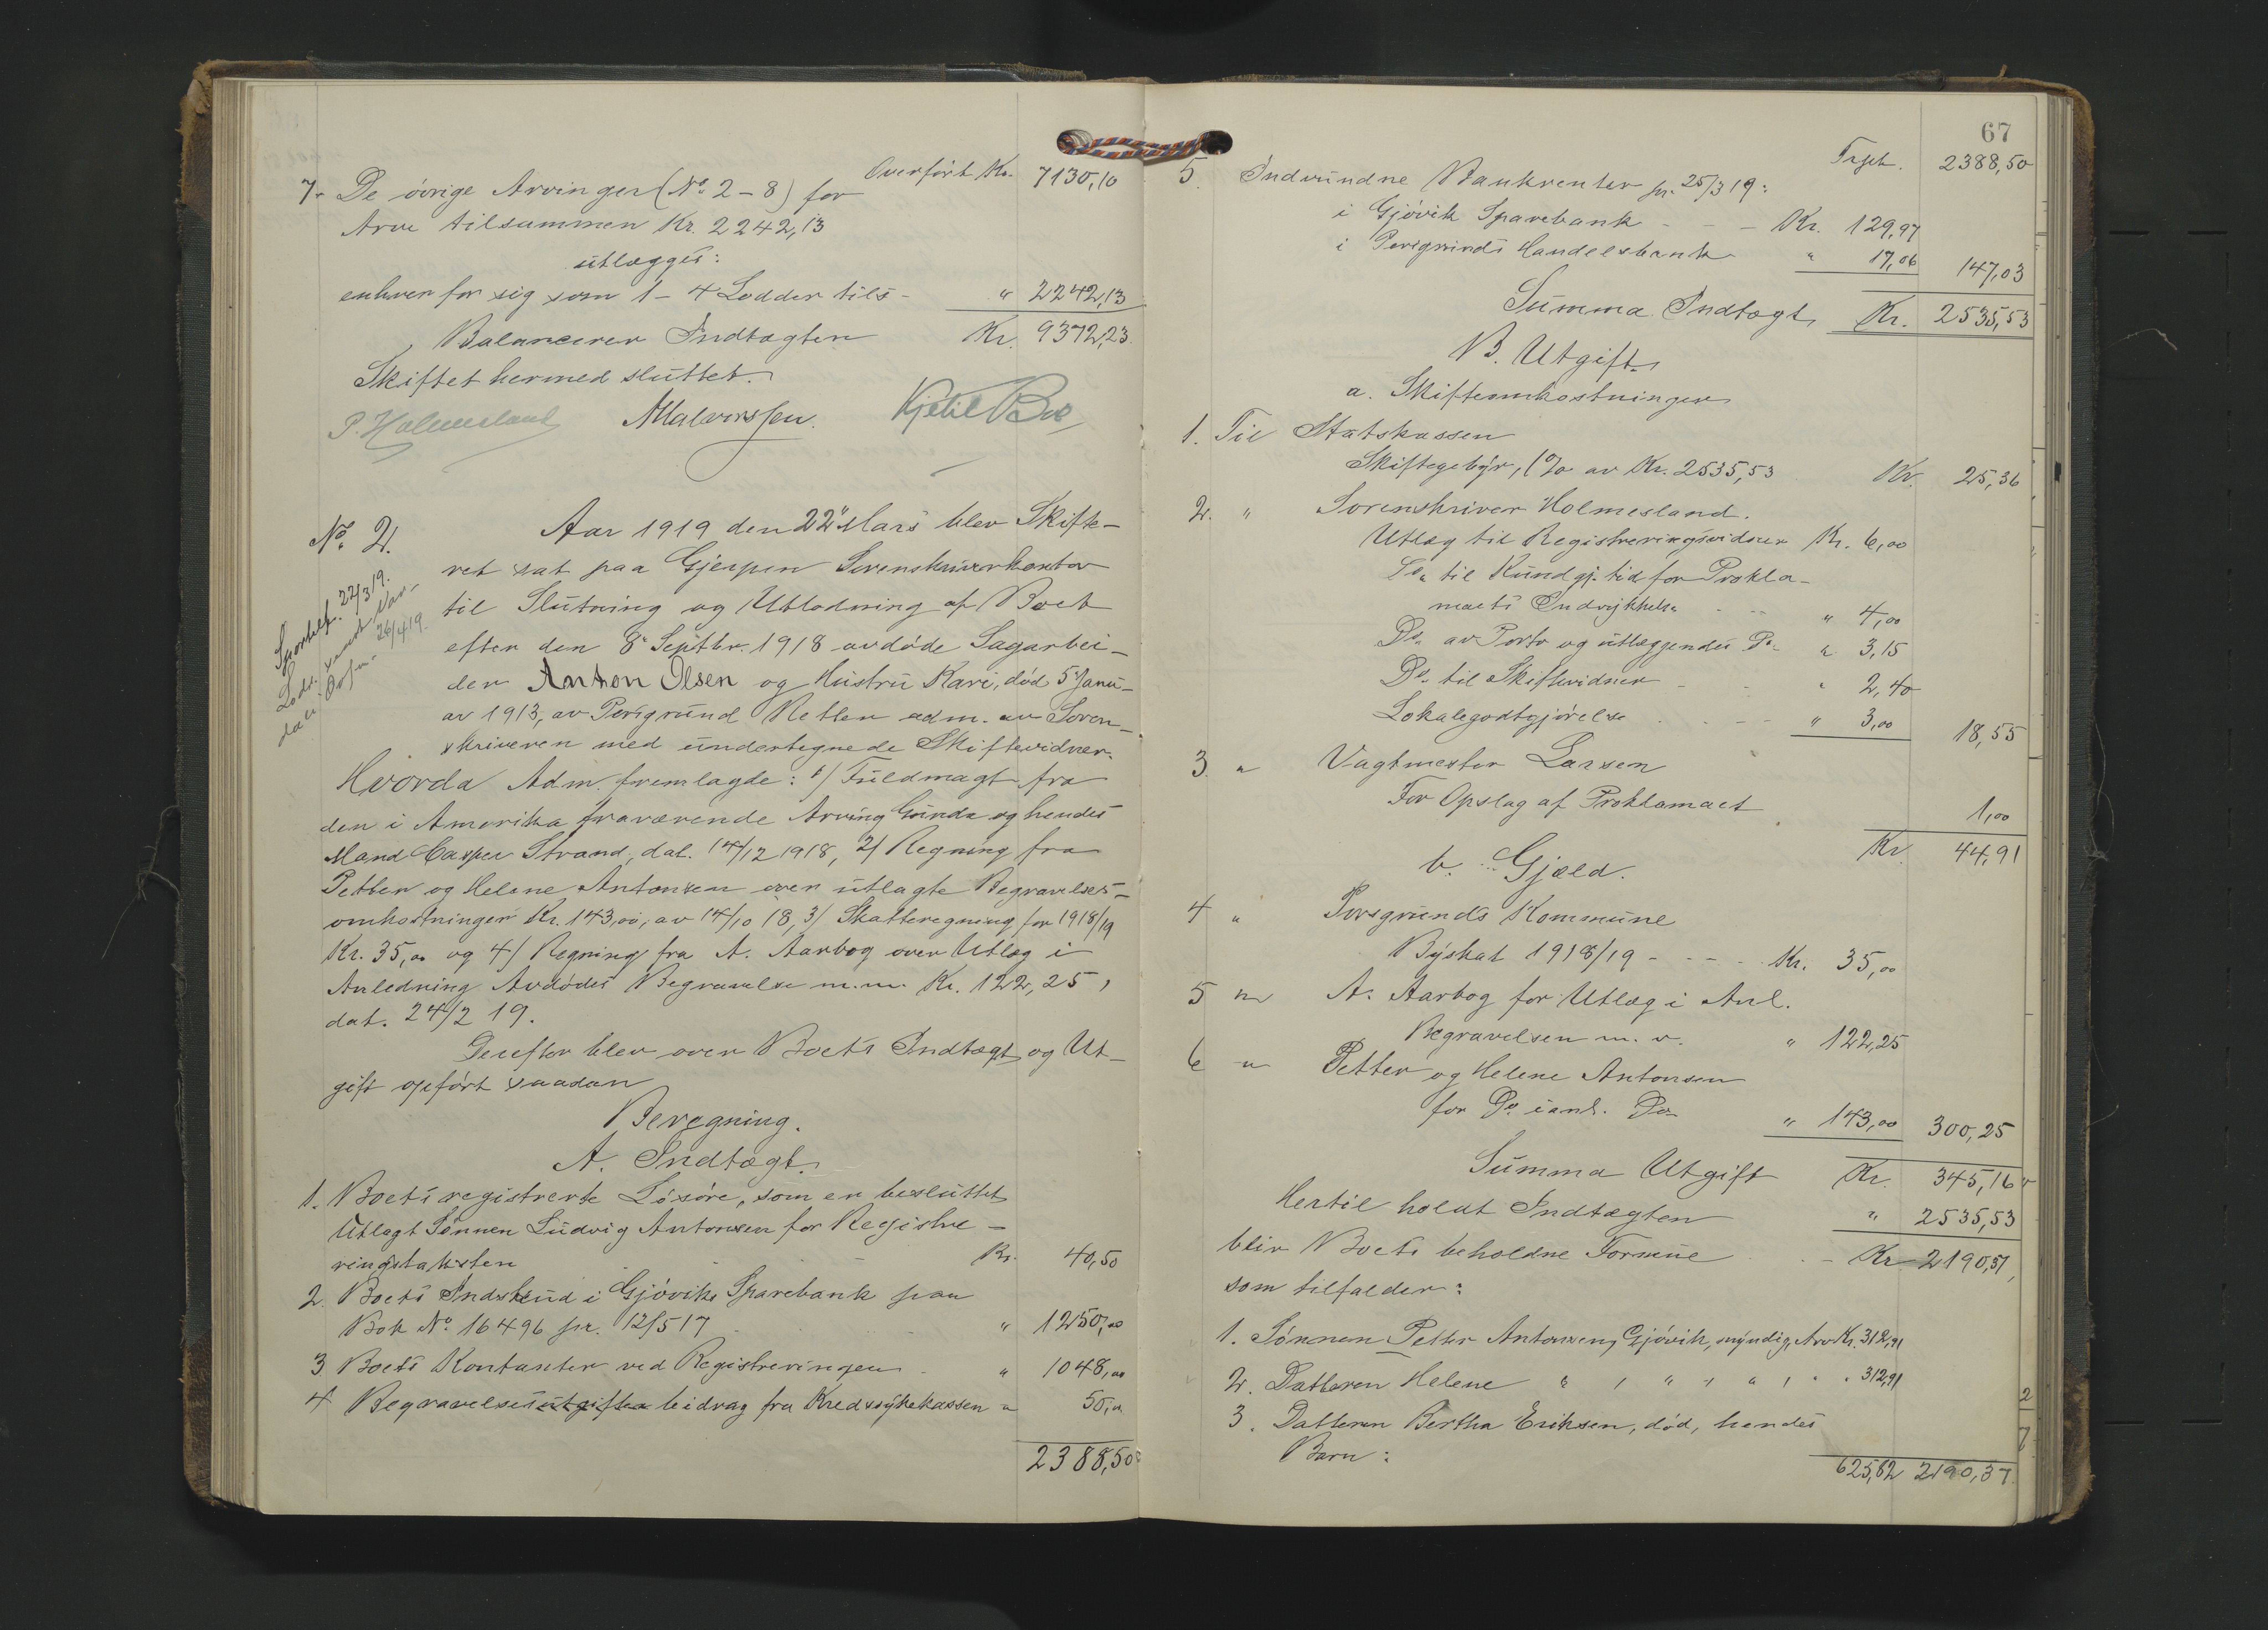 Overført Kr. 7130,10
7. De övrige Arvinger (No 2 - 8) for
Arve tilsammen Kr. 2242,13
utlægges:
enhver for sig som 1 - 4 Lodder tils - " 2242,13
Balancerer Indtægten Kr. 9372,23
Skiftet hermed sluttet.
P. Holmesland A Halvorssen. Kjetil Boe
No. 2.
Aar 1919 den 22" Mars blev Skifte-
ret sat paa Gjerpen Sorenskriverkontor
til Slutning og Utlodning af Boet
efter den 8" Septbr. 1918 avdöde Sagarbei-
der Anton Olsen og Hustru Kari, död 5 Janu-
ar 1913, av Porsgrund. Retten adm. av Soren-
skriveren med undertegnede Skiftevidner.
Sportelf. 22/3 19.
26/4 19.
Hvorda Adm. fremlagde: 1/ Fuldmagt fra
den i Amerika fraværende Arving Gunda og hendes
Mand Casper Strand, dat. 14/12 1918, 2/ Regning fra
Petter og Helene Antonsen over utlagte Begravelses-
omkostninger Kr. 143,00, av 14/10 18, 3/ Skatteregning for 1918/19
Kr. 35,00 og 4/ Regning fra A. Aarbog over Utlæg i
Anledning Avdödes Begravelse m.m. Kr. 122,25,
dat. 24/2 19.
Derefter blev over Boets Indtægt og Ut-
gift opført saadan
Beregning.
A. Indtægt.
1. Boets registrerte Lösöre, som er besluttet
Utlagt Sönnen Ludvig Antonsen for Registre-
ringstaksten Kr. 40,50
2. Boets Indskud i Gjöviks Sparebank paa
Bok No 16496 pr. 12/5 17 " 1250,00
3 Boets Kontanter ved Registreringen " 1048,00
4 Begravelsesutgifter bidrag fra Kredssykekassen " 50,00
2388,50
67
Trspt. 2388,50
5. Indvundne Bankrenter pr. 25/3 19:
i Gjövik Sparebank - - - Kr. 129,97
i Porsgrunds Handelsbank " 17,06 147,03
Summa Indtægt, Kr. 2535,53
B. Utgift.
a. Skifteomkostninger
1. Til Statskassen
Skiftegebyr, 1 % av Kr. 2535,53 Kr. 25,36
2. " Sorenskriver Holmesland.
Utlæg til Registreringsvidner Kr. 6,00
Do. til Kundgj. tid for Prokla-
maets Indrykkelse " 4,00
Do. av Porto og utlæggendes Do. " 3,15
Do. til Skiftevidner " 2,40
Lokalegodtgjörelse " 3,00 18,55
3. " Vagtmester Larsen
For Opslag af Proklamaet 1,00
Kr. 44,91
b. Gjæld.
4 " Porsgrunds Kommune
Byskat 1918/19 - - - Kr. 35,00
5 " A. Aarbog for Utlæg i Anl.
Begravelsen m. v. " 122,25
6 " Petter og Helene Antonsen
for Do. i anl. Do. " 143,00 300,25
Summa Utgift Kr. 345,16
Hertil holdt Indtægten " 2535,53
blir Boets beholdne Formue - Kr 2190,37,
som tilfalder:
1. Sönnen Petter Antonsen, Gjövik, myndig, Arv Kr. 312,91
2. Datteren Helene " , " , " , " 312,91
3. Datteren Bertha Eriksen, död, hendes
Barn:
625,82 2190,37